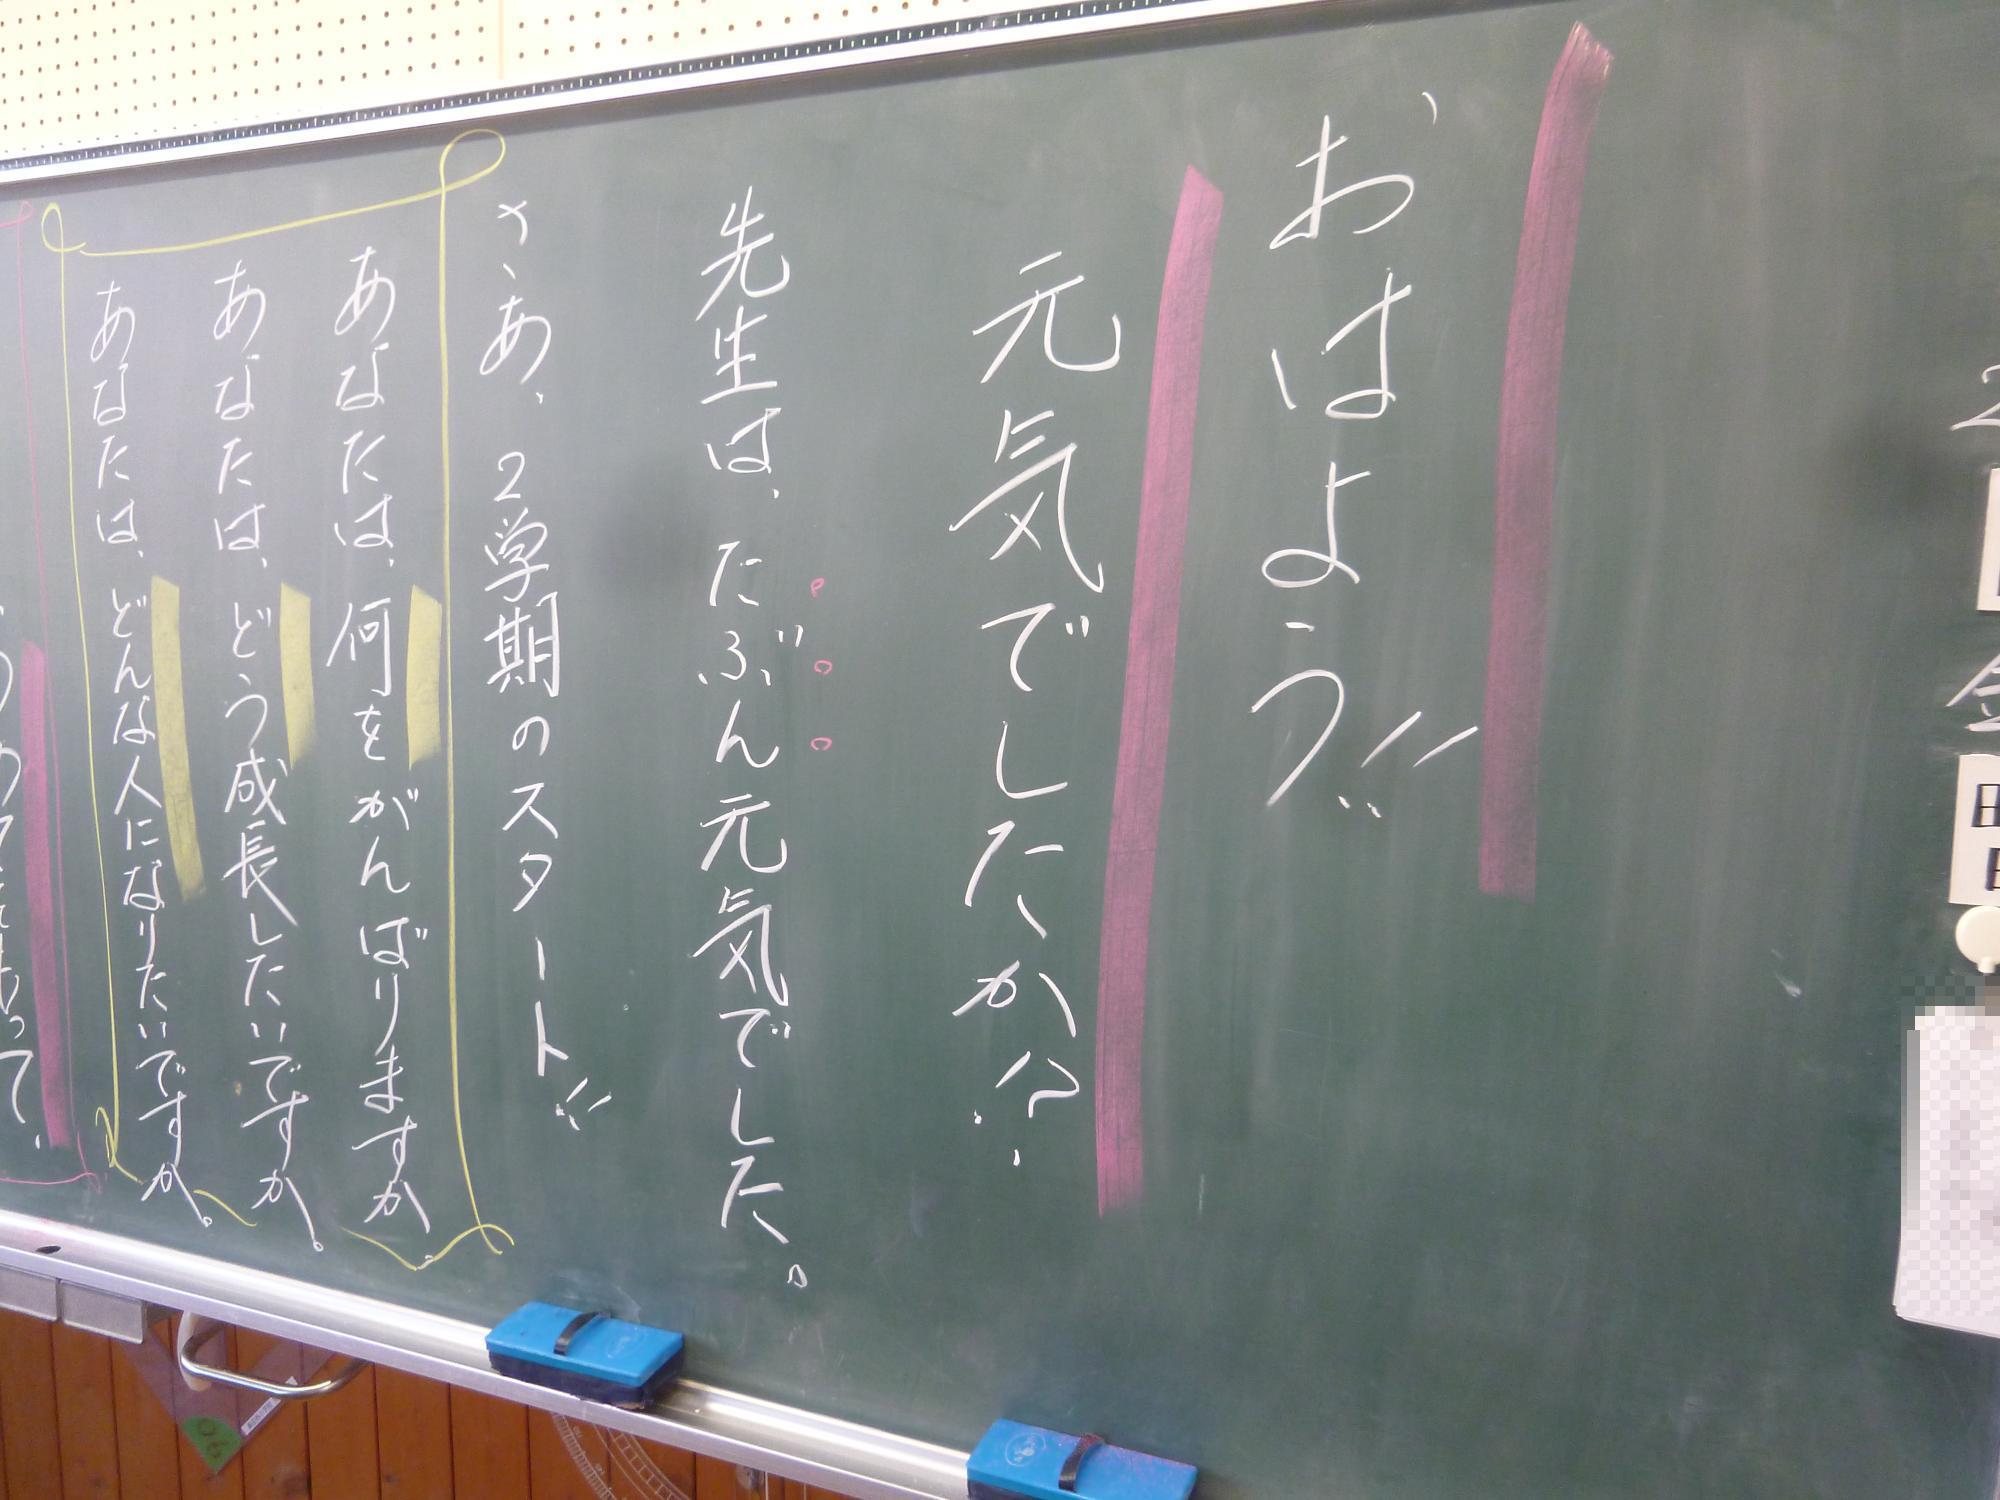 金
曜
日
おはよう!!
元気でしたか!?
先生は、たぶん元気でした。
さあ、2学期のスタート!!
あなたは、何をがんばりますか。
あなたは、どう成長したいですか。
あなたは、どんな人になりたいですか。